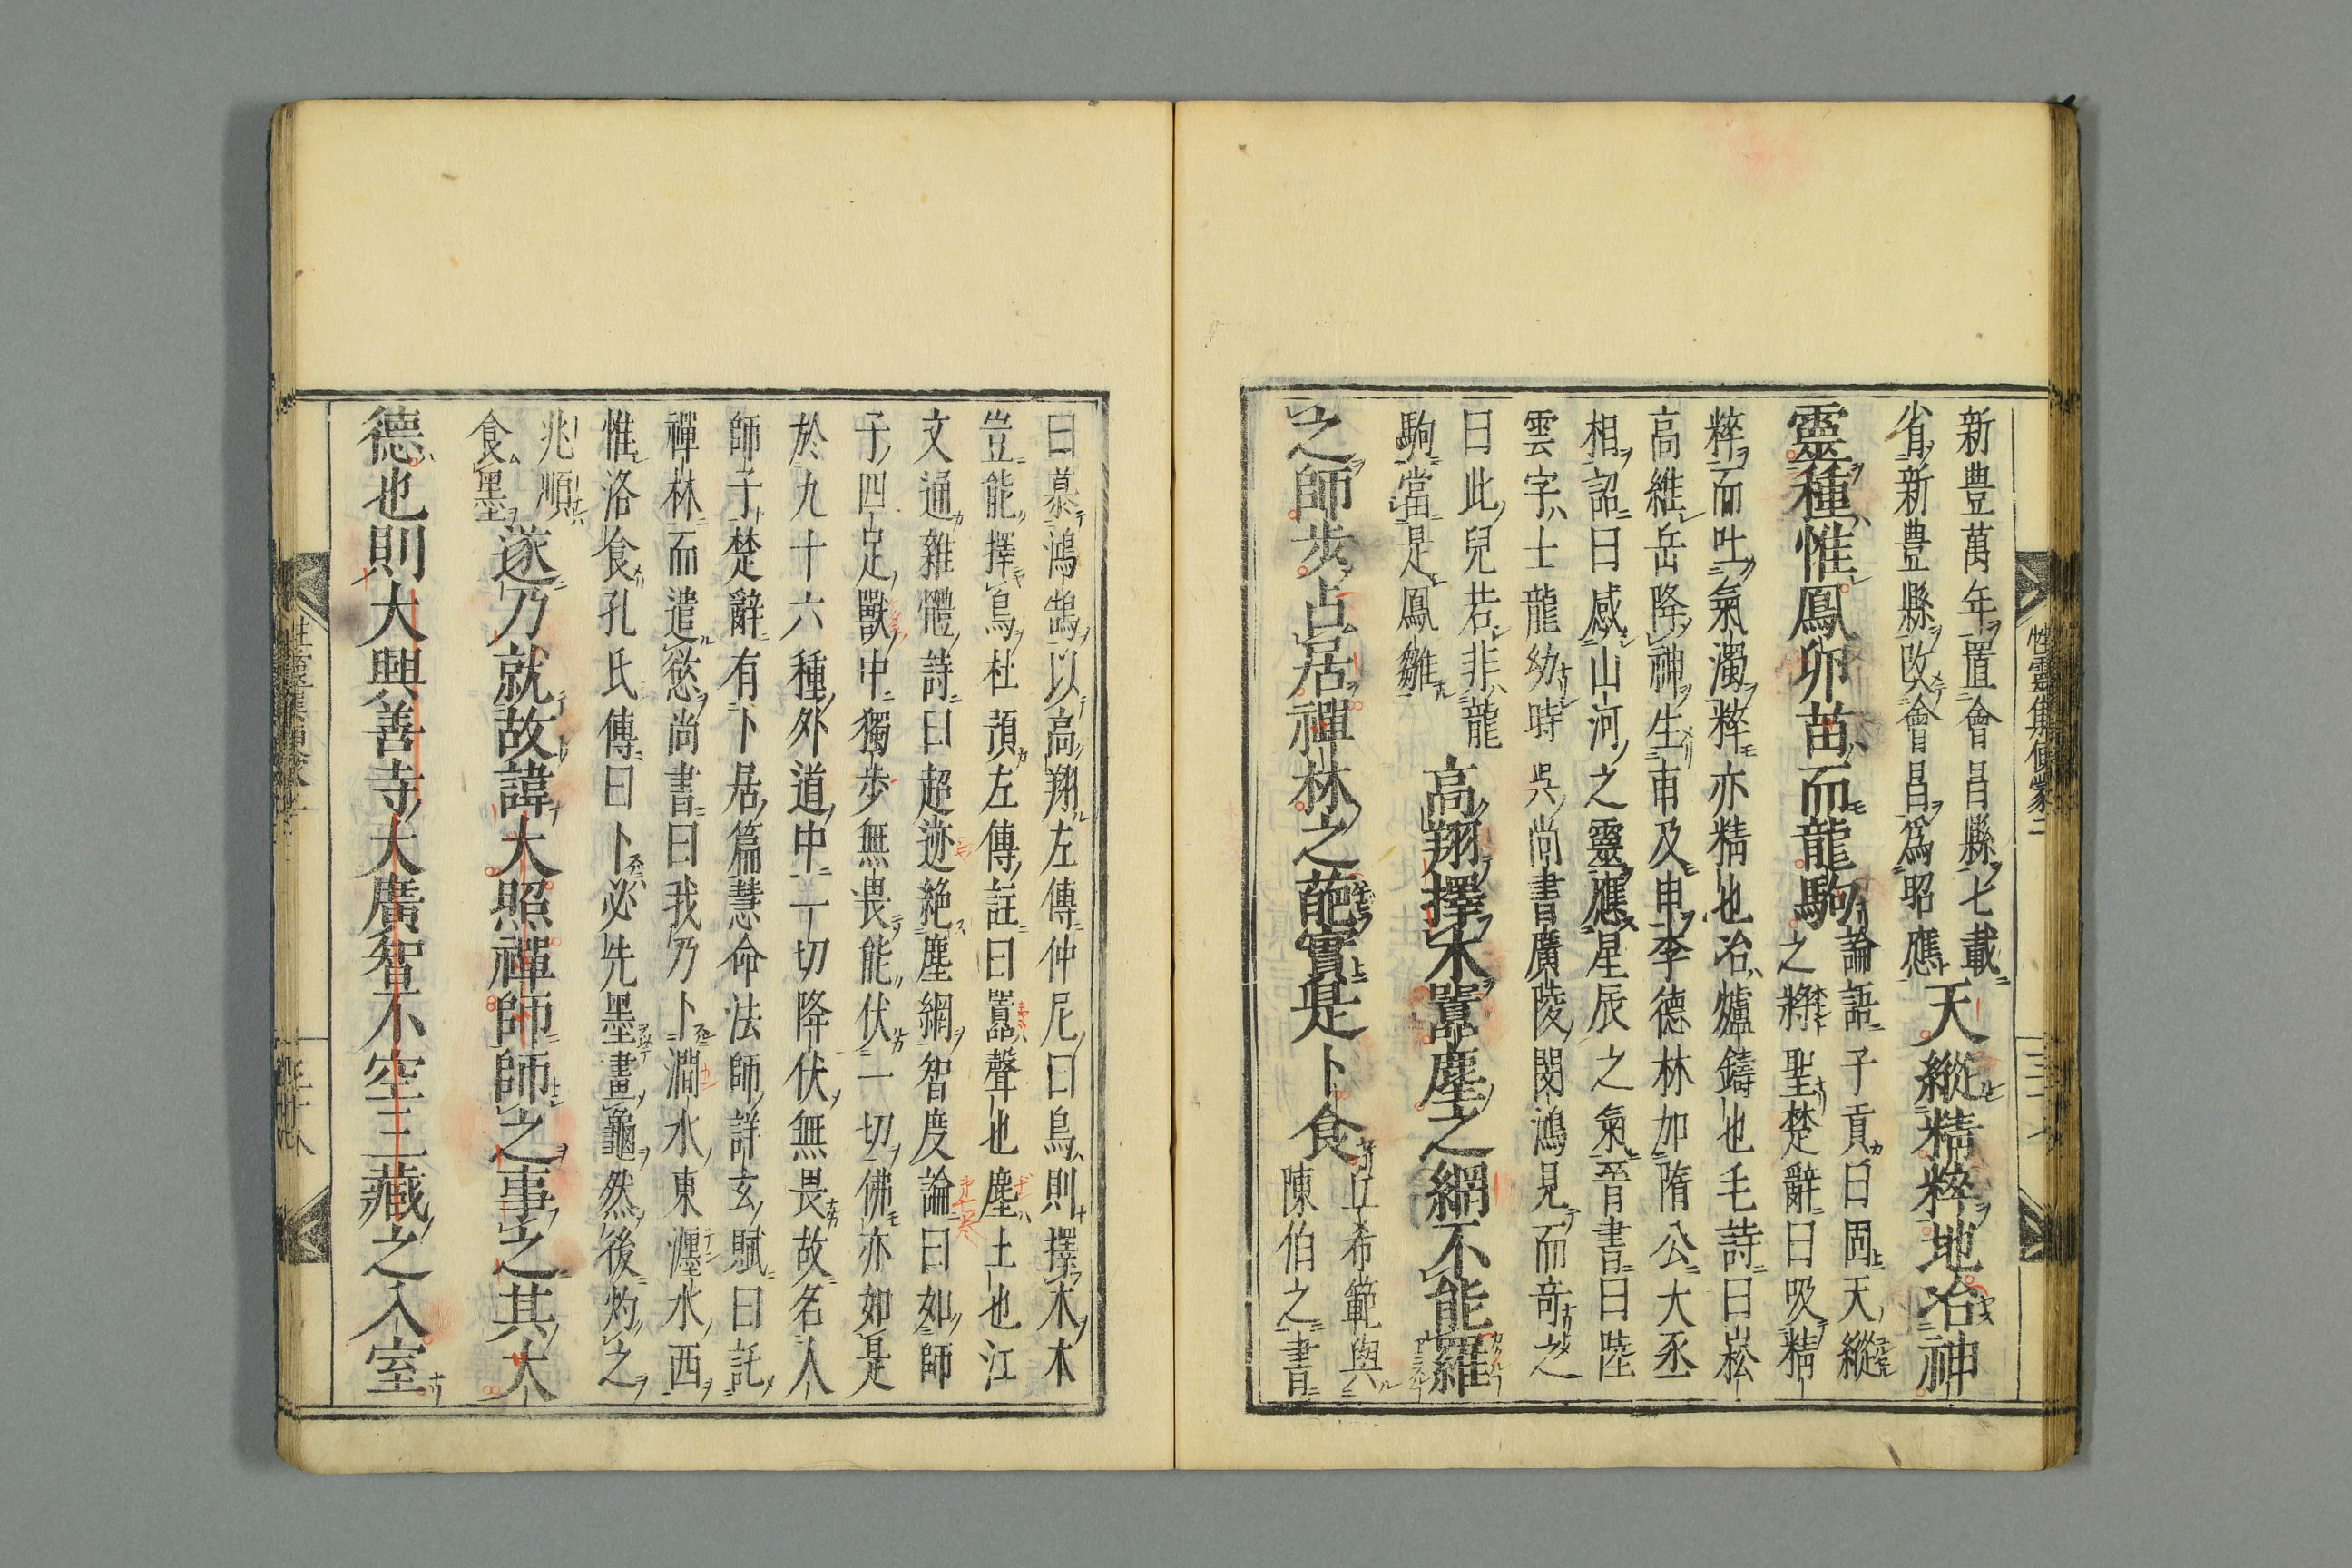 新豊萬年置會昌縣七載
省新豊縣改會昌爲昭應
天縱精粹地冶神
靈種惟鳳卵苗而龍駒
論語子貢曰固天縱
之將聖楚辭曰吸精
粹而吐氣濁粹亦精也冶爐鑄也毛詩曰崧
高維岳降神生甫及申李德林加隋公大丞
相詔曰感山河之靈應星辰之氣晉書曰陸
雲字士龍幼時吳尚書廣陵閔鴻見而奇之
曰此兒若非龍
駒當是鳳雛
高翔擇木囂塵之網不能羅
之師步占居禪林之葩實是卜食
丘希範與
陳伯之書
曰慕鴻鵠以高翔左傳仲尼曰鳥則擇木木
豈能擇鳥杜預左傳註曰囂聲也塵土也江
文通雜體詩曰超迹絶塵網智度論曰如師
子四足獸中獨步無畏能伏一切佛亦如是
於九十六種外道中一切降伏無畏故名人
師子楚辭有卜居篇慧命法師詳玄賦曰託
禪林而遣慾尚書曰我乃卜澗水東瀍水西
惟洛食孔氏傳曰卜必先墨畫龜然後灼之
兆順
食墨
遂乃就故諱大照禪師師之事之其大
德也則大興善寺大廣智不空三藏之入室
性靈集便蒙二